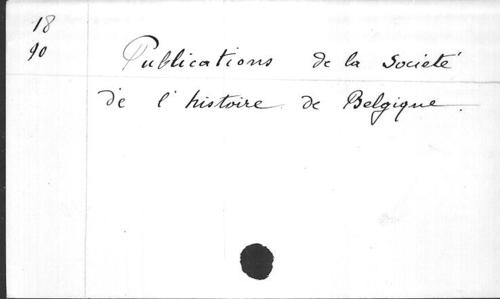 18
90
Publications de la Societé
de l'histoire de Belgique.